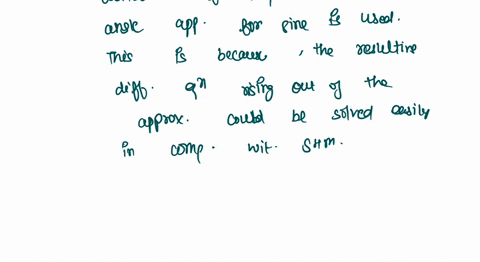 angle app. for sine is used.
This is because, the resulting
diff. qⁿ rising out of the
approx. could be solved easily
in comp. wit. SHM.